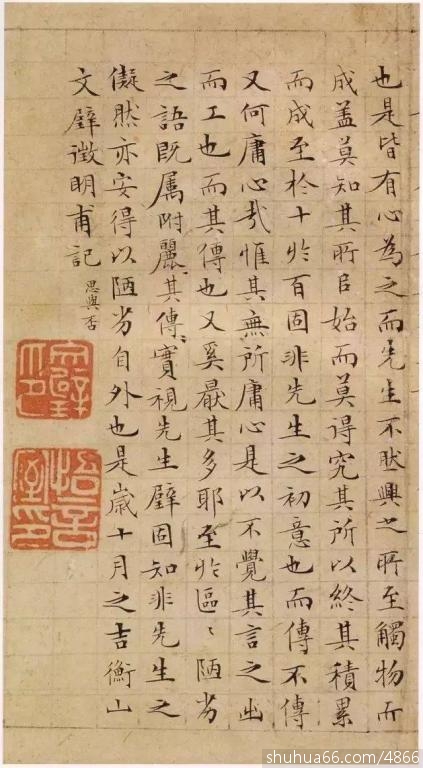 也是皆有心為之而先生不然興之所至觸物而
成盖莫知其所㠯始而莫得究其所以終其積累
而成至於十於百固非先生之初意也而傳不傳
又何庸心哉惟其無所庸心是以不覺其言之出
而工也而其傳也又奚厭其多耶至於區〻陋劣
之語既属附麗其傳實視先生壁固知非先生之
儗然亦安得以陋劣自外也是歲十月之吉衡山
文壁徵明甫記
與否
文壁印
悟言室印
shuhua66.com/4866